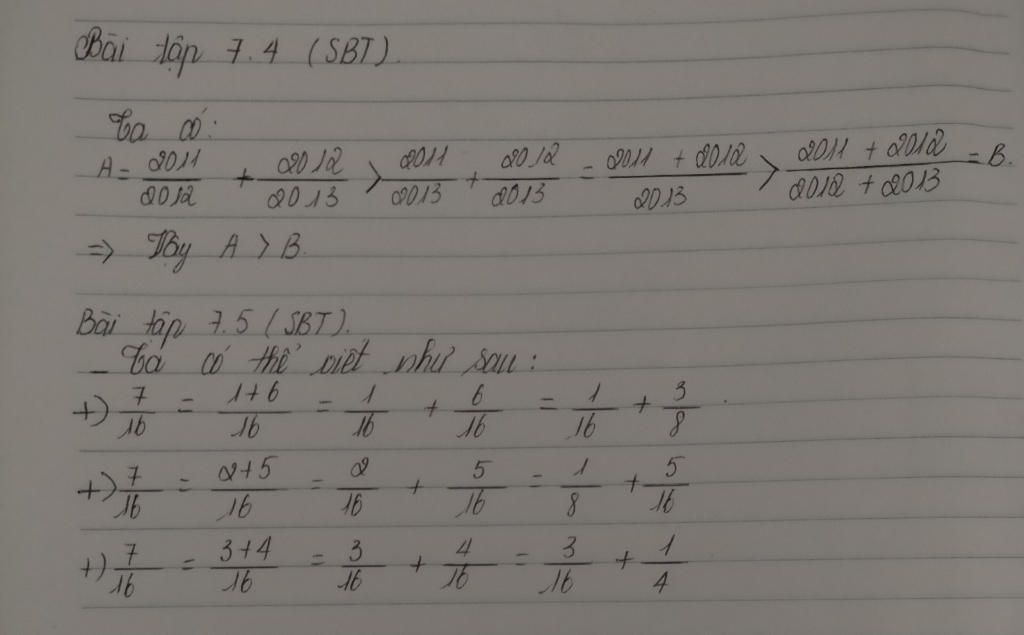 Bài tập 7.4 (SBT).
Ta có:
A = 2011/2012 + 2012/2013 > 2011/2013 + 2012/2013 = (2011 + 2012)/2013 > (2011 + 2012)/(2012 + 2013) = B.
=> Vậy A > B.
Bài tập 7.5 (SBT).
- Ta có thể viết như sau:
+) 7/16 = (1+6)/16 = 1/16 + 6/16 = 1/16 + 3/8.
+) 7/16 = (2+5)/16 = 2/16 + 5/16 = 1/8 + 5/16
+) 7/16 = (3+4)/16 = 3/16 + 4/16 = 3/16 + 1/4